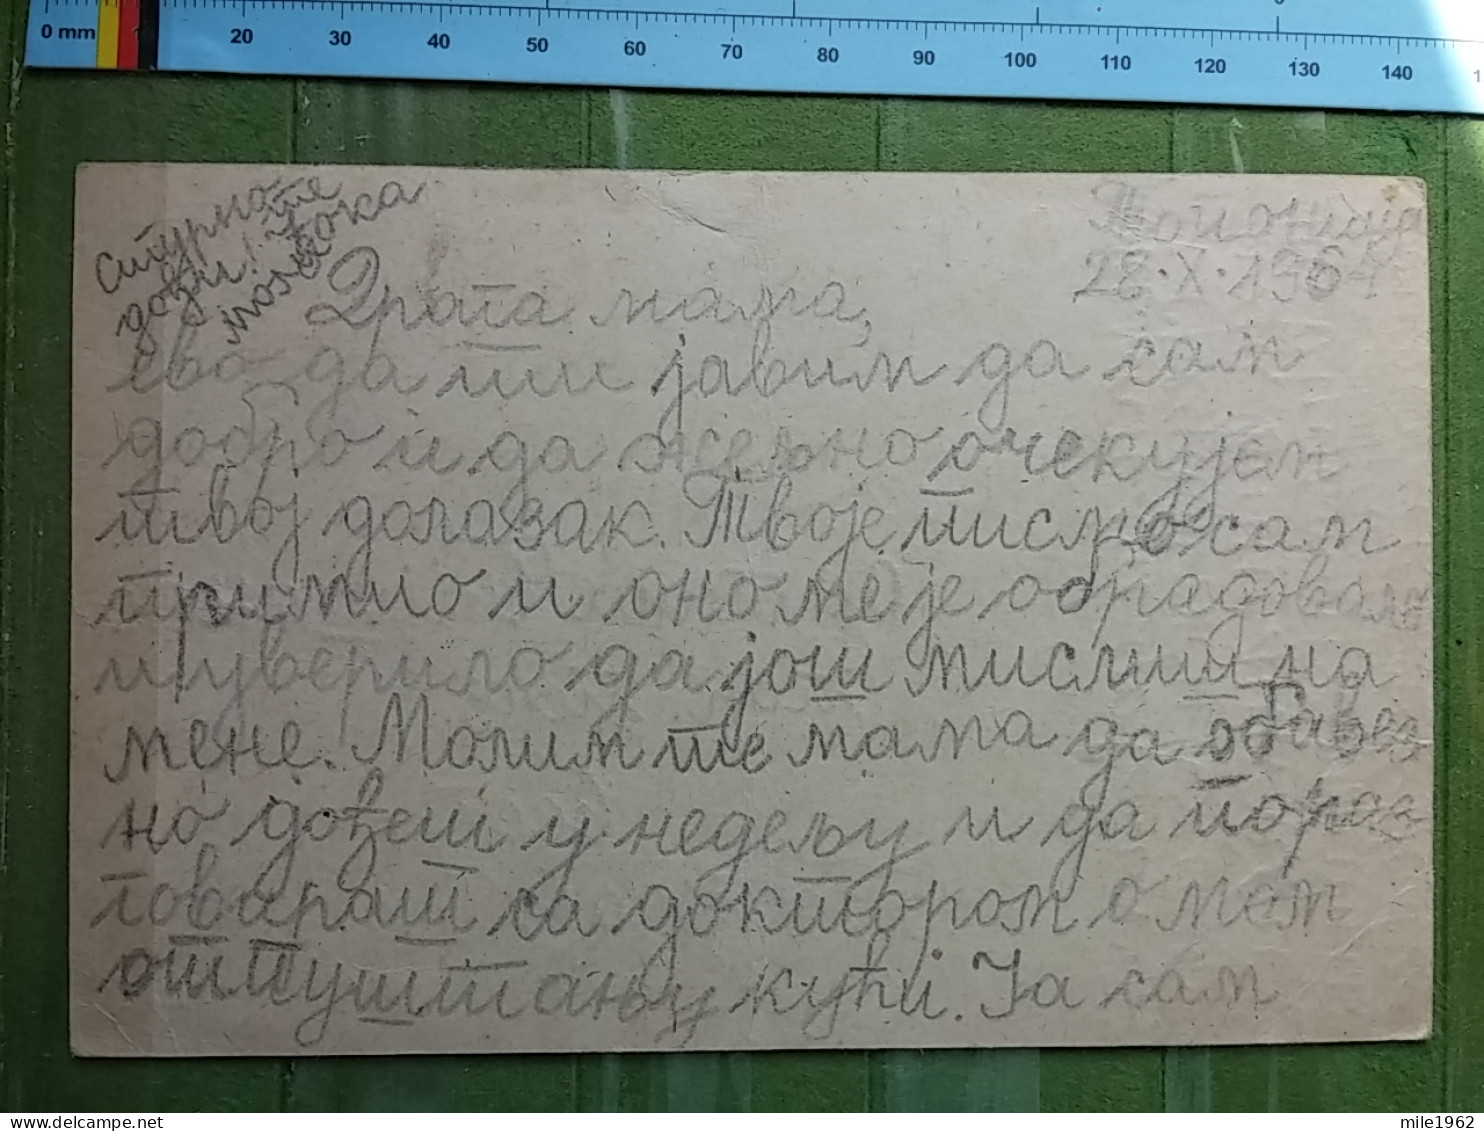 0 mm 10 20 30 40 50 60 70 80 90 100 110 120 130 140
28.X.1964
Сигурно
дођи! Јока
те
моли
Драга мама,
ево да ти јавим да сам
добро и да жељно очекујем
твој долазак. Твоје писмо сам
примио и оно ме је обрадовало
и уверило да још мислиш на
мене. Молим те мама да обавез
но дођеш у недељу и да пораз
говараш са доктором о мом
отпуштању кући. Ја сам
mile1962